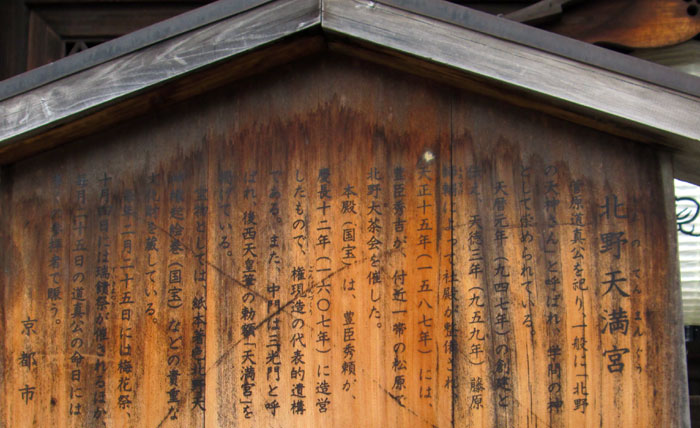 北野天満宮
きたのてんまんぐう
菅原道真公を祀り、一般に「北野
の天神さん」と呼ばれ、学問の神
として崇められている。
天暦元年(九四七年)の創建と
天徳三年(九五九年)藤原
によって社殿が整備され、
天正十五年(一五八七年)には
豊臣秀吉が、付近一帯の松原で
北野大茶会を催した。
本殿(国宝)は、豊臣秀頼が、
慶長十二年(一六〇七年)に造営
したもので、権現造の代表的遺構
である。また、中門は三光門と呼
ばれ、後西天皇筆の勅額「天満宮」を
掲げている。
しては、紙本著色北野天
縁起絵巻(国宝)などの貴重な
を蔵している。
二月二十五日には梅花祭、
十月 は瑞饋祭が催されるほか
毎月二十五日の道真公の命日には
参拝者で賑う。
京都市